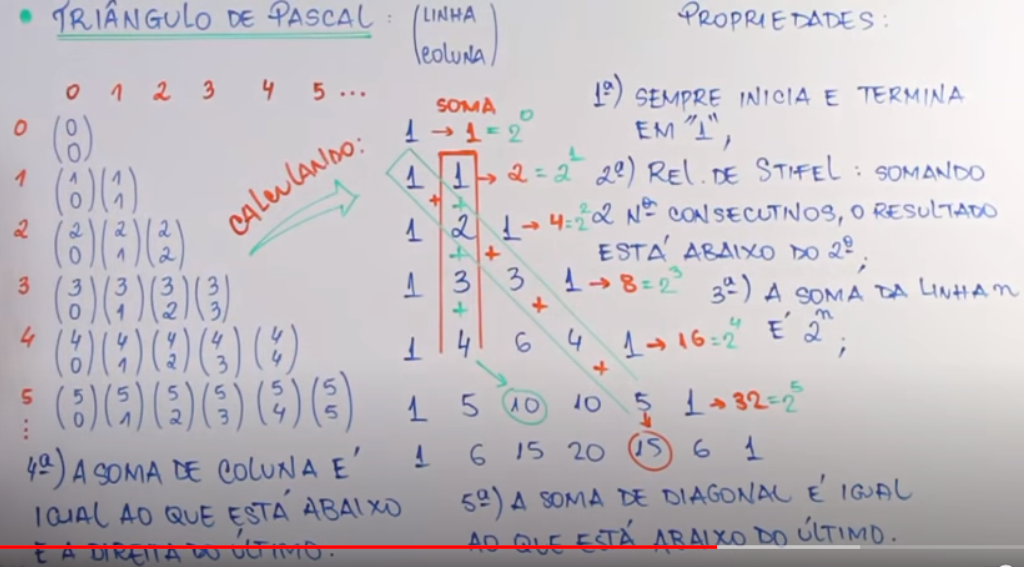 • TRIÂNGULO DE PASCAL : (LINHA COLUNA)
PROPRIEDADES:
0 1 2 3 4 5 ...
0 (0 0)
1 (1 0) (1 1)
2 (2 0) (2 1) (2 2)
3 (3 0) (3 1) (3 2) (3 3)
4 (4 0) (4 1) (4 2) (4 3) (4 4)
5 (5 0) (5 1) (5 2) (5 3) (5 4) (5 5)
⋮
CALCULANDO:
SOMA
1 → 1 = 2^0
1 1 → 2 = 2^1
+ +
1 2 1 → 4 = 2^2
+ +
1 3 3 1 → 8 = 2^3
+ +
1 4 6 4 1 → 16 = 2^4
+
1 5 10 10 5 1 → 32 = 2^5
1 6 15 20 15 6 1
1ª) SEMPRE INICIA E TERMINA
EM "1",
2ª) REL. DE STIFEL : SOMANDO
2 Nºs CONSECUTIVOS, O RESULTADO
ESTÁ ABAIXO DO 2º;
3ª) A SOMA DA LINHA n
É 2^n;
4ª) A SOMA DE COLUNA É
IGUAL AO QUE ESTÁ ABAIXO
E À DIREITA DO ÚLTIMO.
5ª) A SOMA DE DIAGONAL É IGUAL
AO QUE ESTÁ ABAIXO DO ÚLTIMO.